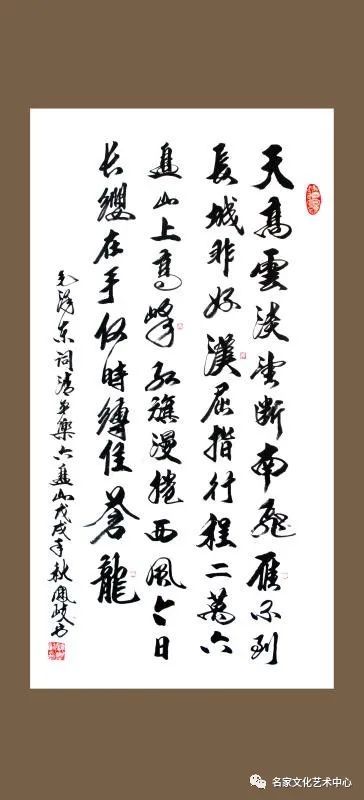 天高雲淡望断南飛雁不到
長城非好漢屈指行程二萬六
盘山上高峰红旗漫捲西風今日
长纓在手何時縛住蒼龍
毛泽东词清平樂六盘山戊戌年秋岐书
名家文化艺术中心